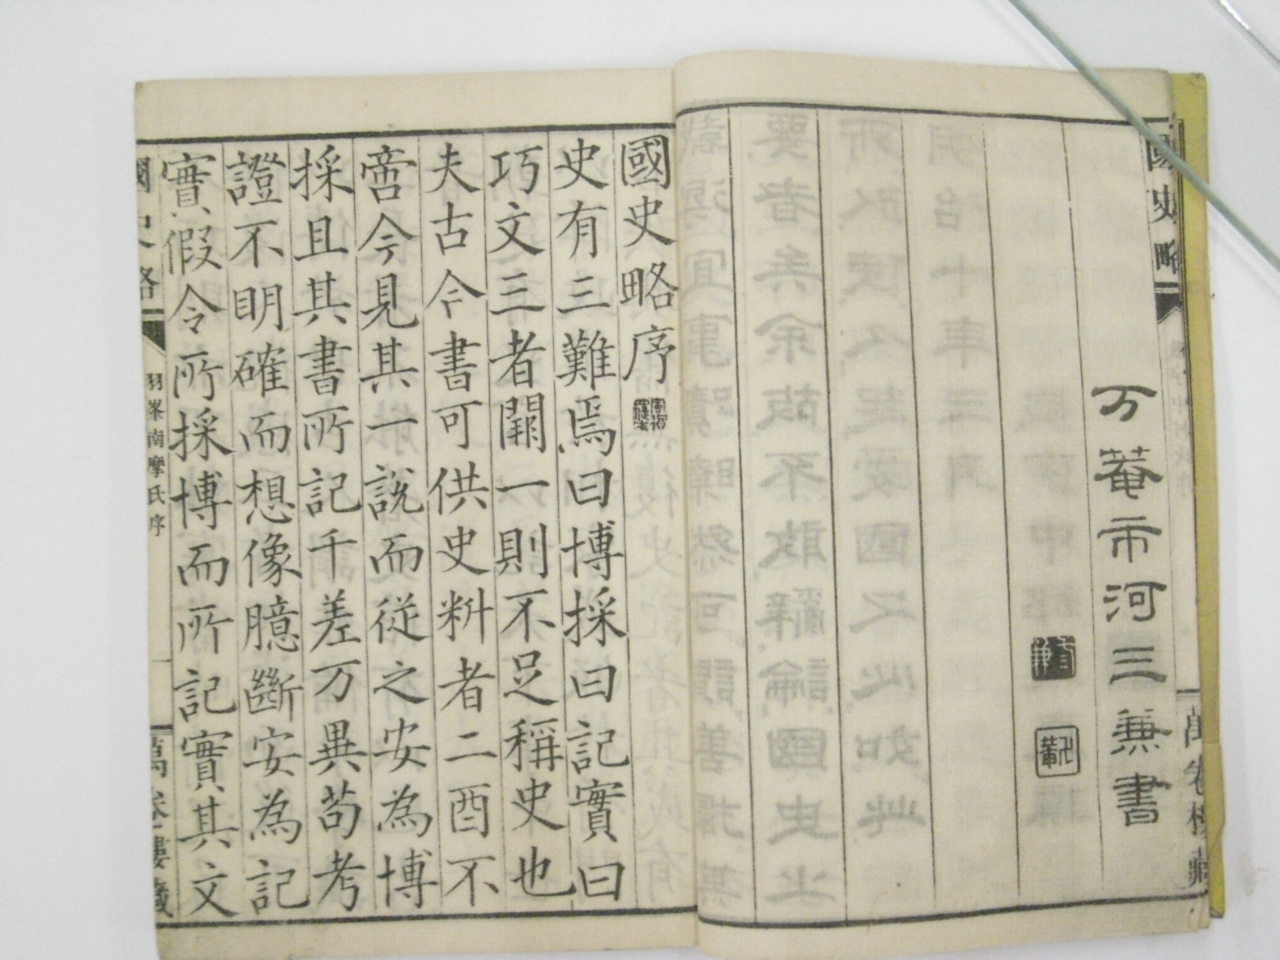 國史略
萬卷樓藏
万菴市河三兼書
國史略序
史有三難焉曰博採曰記實曰
巧文三者闕一則不足稱史也
夫古今書可供史料者二酉不
啻今見其一說而從之安為博
採且其書所記千差万異苟考
證不明確而想像臆斷安為記
實假令所採博而所記實其文
國史略
羽峯南摩氏序
一
萬卷樓藏